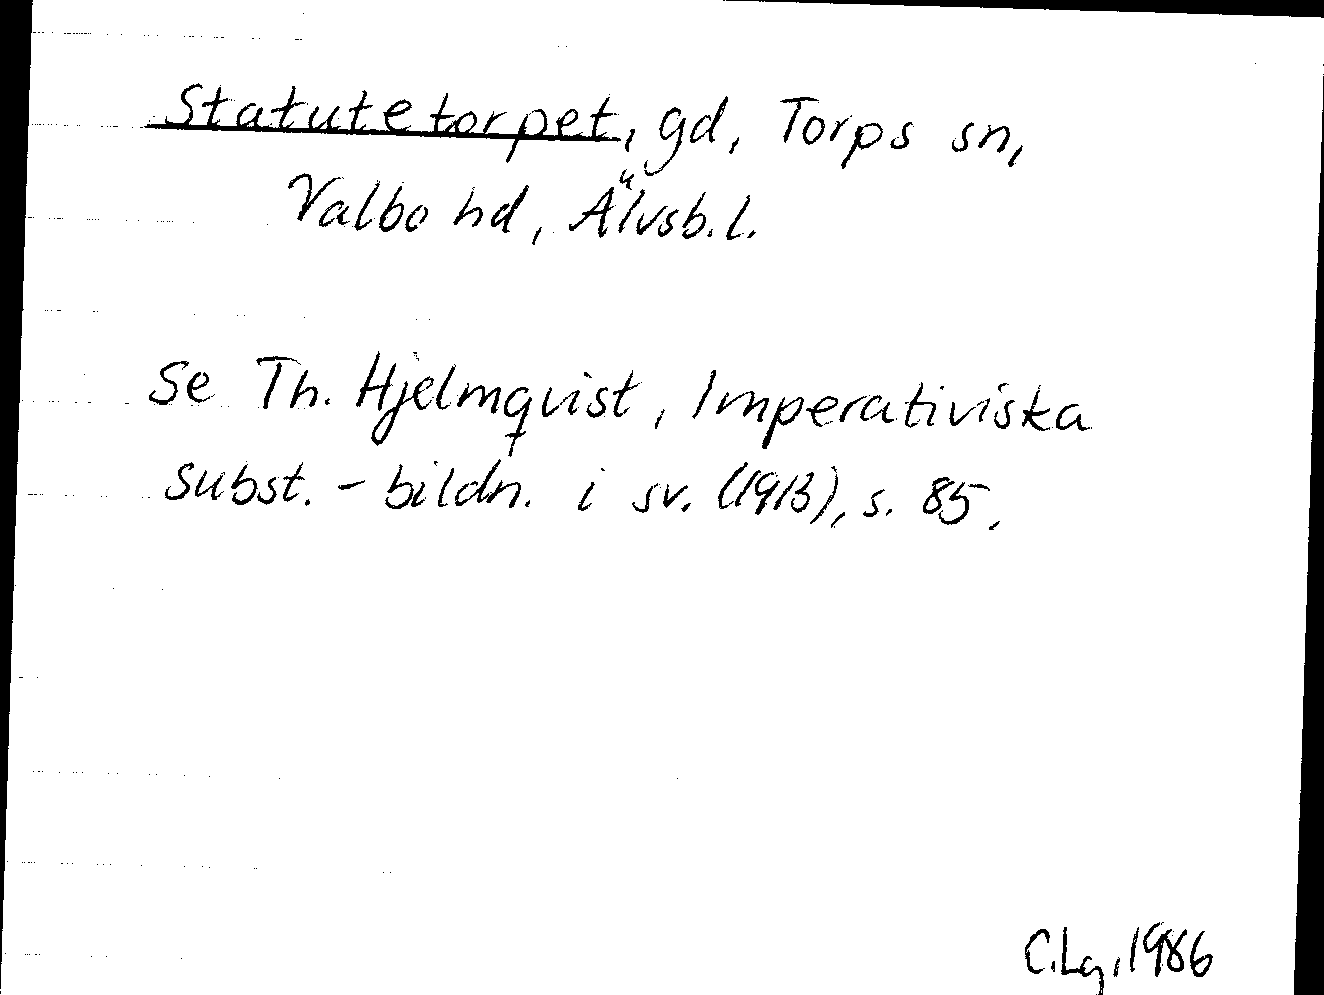 Statutetorpet, gd, Torps sn,
Valbo hd, Älvsb. l.
Se Th. Hjelmqvist, Imperativiska
subst. - bildn. i sv. (1913), s. 85.
C.Lg, 1986